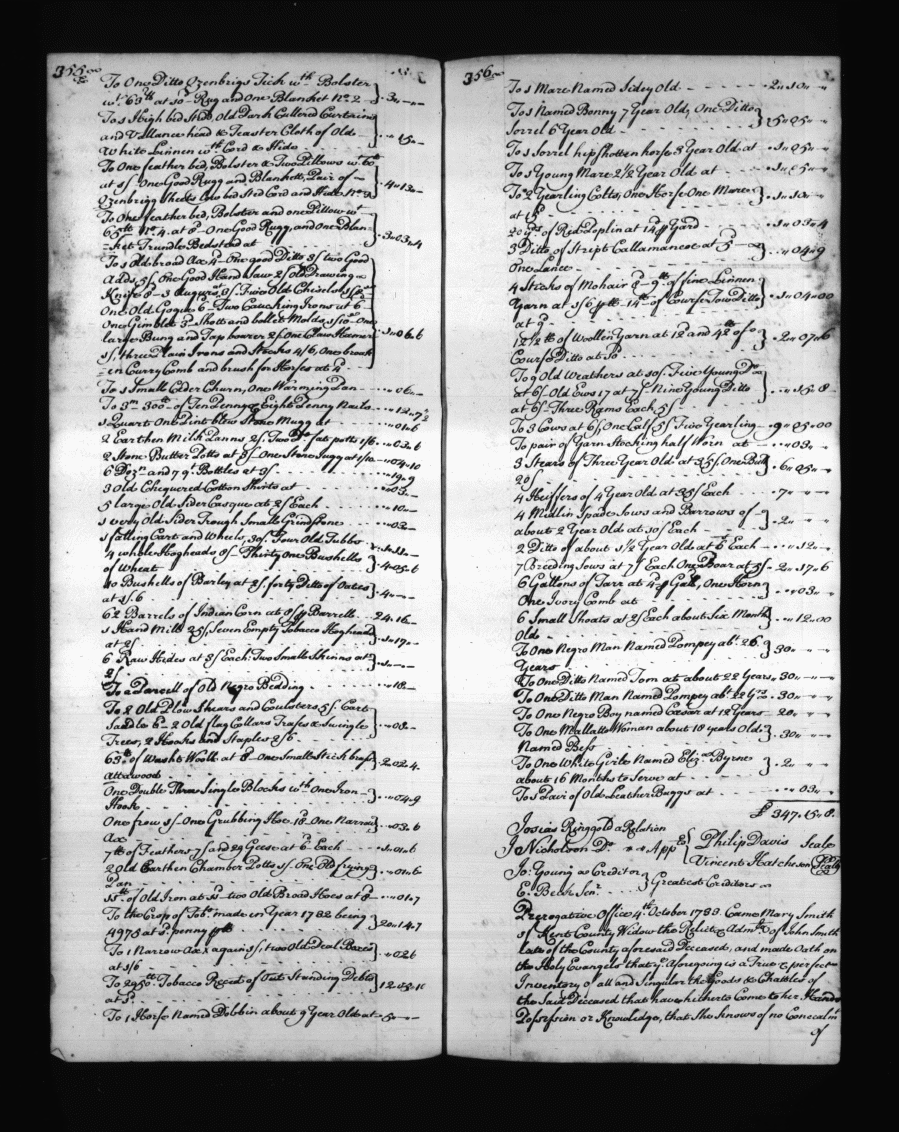 355
To One Ditto Ozenbrigs Tick wth Bolster
wt 63th at 10d Rug and One Blanket No 2 3 " - " -
To 1 High bed Sted Old Dark Cullered Curtains
and Vallance head & Teaster Cloth of Old
White Linnen wth Cord & Hide " 15 " -
To One feather bed, Bolster & Two Pillows wt
at 1/ One Good Rugg and Blankett, Pair of
Ozenbrigg Sheets Low bed Sted Cord and Hide 4 " 12 " -
To One feather bed, Bolster and one Pillow wt
No 4. at 8d One Good Rugg, and One Blan-
-ket Trundle Bedstead at 3 " 03 " 4
To 1 Old broad Ax 4d One good Ditto 3/ two Good
Adds 5/ One Good Hand Saw 2/ Old Drawing
Knife 8d 3 Augurs 3/ Two Old Chisels
One Old Goge 6d Two Caucking Irons at 6d
One Gimblet 3d Shott and bullet Molds One
large Bung and Tap boarer 2/ One Claw Hamer
1/ three Plain Irons and Stocks 4/6, One brook
-en Curry Comb and brush for Horses at 4d 1 " 06 " 6
To 1 Small Elder Churn, One Warming Pan " 06 " -
To 3m 300th of Ten Penny Eight Penny Nails " 12 " 7 1/2
1 Quart One Pint blew Stone Mugg at " 01 " 6
2 Earthen Milk Panns 2/ Two Do fatt potts 1/6 " 03 " 6
2 Stone Butter Potts at 3/ One Stone Jugg at 1/10 " 04 " 10
6 Dozn and 7 qt Bottles at 3/ " 19 " 9
3 Old Chequered Cotton Shirts at " 03 " -
5 large Old Sider Casque at 2/ Each " 10 " -
1 very Old Sider Trough Small Grindstone " 03 " -
1 falling Cart and Wheels, 30/ Four Old Tubbs 1 " 11 " -
4 whole Hogheads 0/ Thirty One Bushells
of Wheat 4 " 05 " 6
10 Bushells of Barley at 2/ forty Ditto of Oates
at 1/6 4 " - " -
62 Barrels of Indian Corn at 8/ p Barrell 24 " 16 " -
1 Hand Mill 25/ Seven Empty Tobacco Hogheads
at 2/ 1 " 17 " -
6 Raw Hides at 3/ Each Two Small Skinns at
2/ 1 " - " -
To a Parcell of Old Negro Bedding " 18 " -
To 2 Old Plow Shears and Coulsters 5/ Cart
Saddle 6d 2 Old flag Collars Trases & Swingle
Trees, 2 Hooks and Staples 2/6 " 08 " -
63th of Washt Wooll at 8d One Small Stick bras
attawood 2 " 02 " 4
One Double Three Single Blocks wth One Iron
Hook " 04 " 9
One frow 1/ One Grubbing Hoe One Narrow
Ax " 03 " 6
7th of Feathers 7/ and 29 Geese at 6d Each 1 " 01 " 6
2 Old Earthen Chamber Potts 1/ One Old frying
Pan " 01 " 6
55th of Old Iron at two Old Broad Hoes at " 01 " 7
To the Crop of Tobo made in Year 1732 being
4975 at penny p 20 " 14 " 7
To 1 Narrow Ax again 1/ two Old Deal Boxes
at 1/6 " 02 " 6
To 2950th Tobacco Receipt of Out Standing Debts
at 12 " 05 " 10
To 1 Horse Named Dobbin about 9 Year Old at 5 " - " -
356
To 1 Mare Named Sidey Old 2 " 10 " -
To 1 Named Bonny 7 Year Old, One Ditto
Sorrel 6 Year Old 5 " 05 " -
To 1 Sorrel hipshotten horse 3 Year Old at 1 " 05 " -
To 1 Young Mare 2 1/2 Year Old at 1 " 05 " -
To 2 Yearling Colts, One Horse One Mare
at 15/ 1 " 10 " -
20 yds of Red Poplin at p Yard 1 " 03 " 4
3 Ditto of Stript Callamancoe at
One Lance " 04 " 9
4 Sticks of Mohair of fine Linnen
Yarn at 14th of Courser Tow Ditto
at 9d 1 " 04 " 00
12 1/2 th of Woollen Yarn at 12 and 42th of
Course Ditto at 2 " 07 " 6
To 9 Old Weathers at 10/ Five Young Do
at 6/ Old Ews 17 at 7/ Nine Young Ditto
at 6/ Three Rams Each 5/ 15 " 8
To 3 Cows at One Calf 5/ Two Yearling 9 " 05 " 00
To pair of Yarn Stocking half Worn at " 03 " -
3 Stears of Three Year Old at 35/ One Bull
20/ 6 " 05 " -
4 Heiffers of 4 Year Old at 35/ Each 7 " - " -
4 Midlin Spade Sows and Barrows of
about 2 Year Old at 10/ Each 2 " - " -
2 Ditto of about 1 1/2 Year Old at 6/ Each " 12 " -
7 Breeding Sows at 7/ Each One Boar at 5/ 2 " 17 " 6
6 Gallons of Tarr at p Gall, One Horn
One Ivory Comb at " 03 " -
6 Small Shoats at 2/ Each about Six Months
Old " 12 " 00
To One Negro Man Named Pompey abt 26
Years 30 " - " -
To One Ditto Named Tom att about 22 Years 30 " - " -
To One Ditto Man Named Pompey abt 22 Yrs 30 " - " -
To One Negro Boy named Cæsar at 12 Years 20 " - " -
To One Mallatto Woman about 18 years Old
Named Bess 30 " - " -
To One White Girle Named Eliz Byrne
about 16 Months to Serve at 2 " - " -
To 1 Pair of Old Leather Baggs at " 03 " -
£ 347. 15 " 8.
Josias Ringgold a Relation
J Nicholson Do " " App
Philip Davis Seale
Vincent Hatcheson Seale
Jo: Young as Creditor
E. Beck Senr
Greatest Creditors
Prerogative Office 4th October 1733. Came Mary Smith
of Kent County Widow the Relict & Admx of John Smith
late of the County aforesaid Deceased, and made Oath on
the Holy Evangels that ye Aforegoing is a True & perfect
Inventory of all and Singular the Goods & Chattles of
the said Deceased that have hitherto Come to her Hands
Possession or Knowledge, that She knows of no Concealmt
of